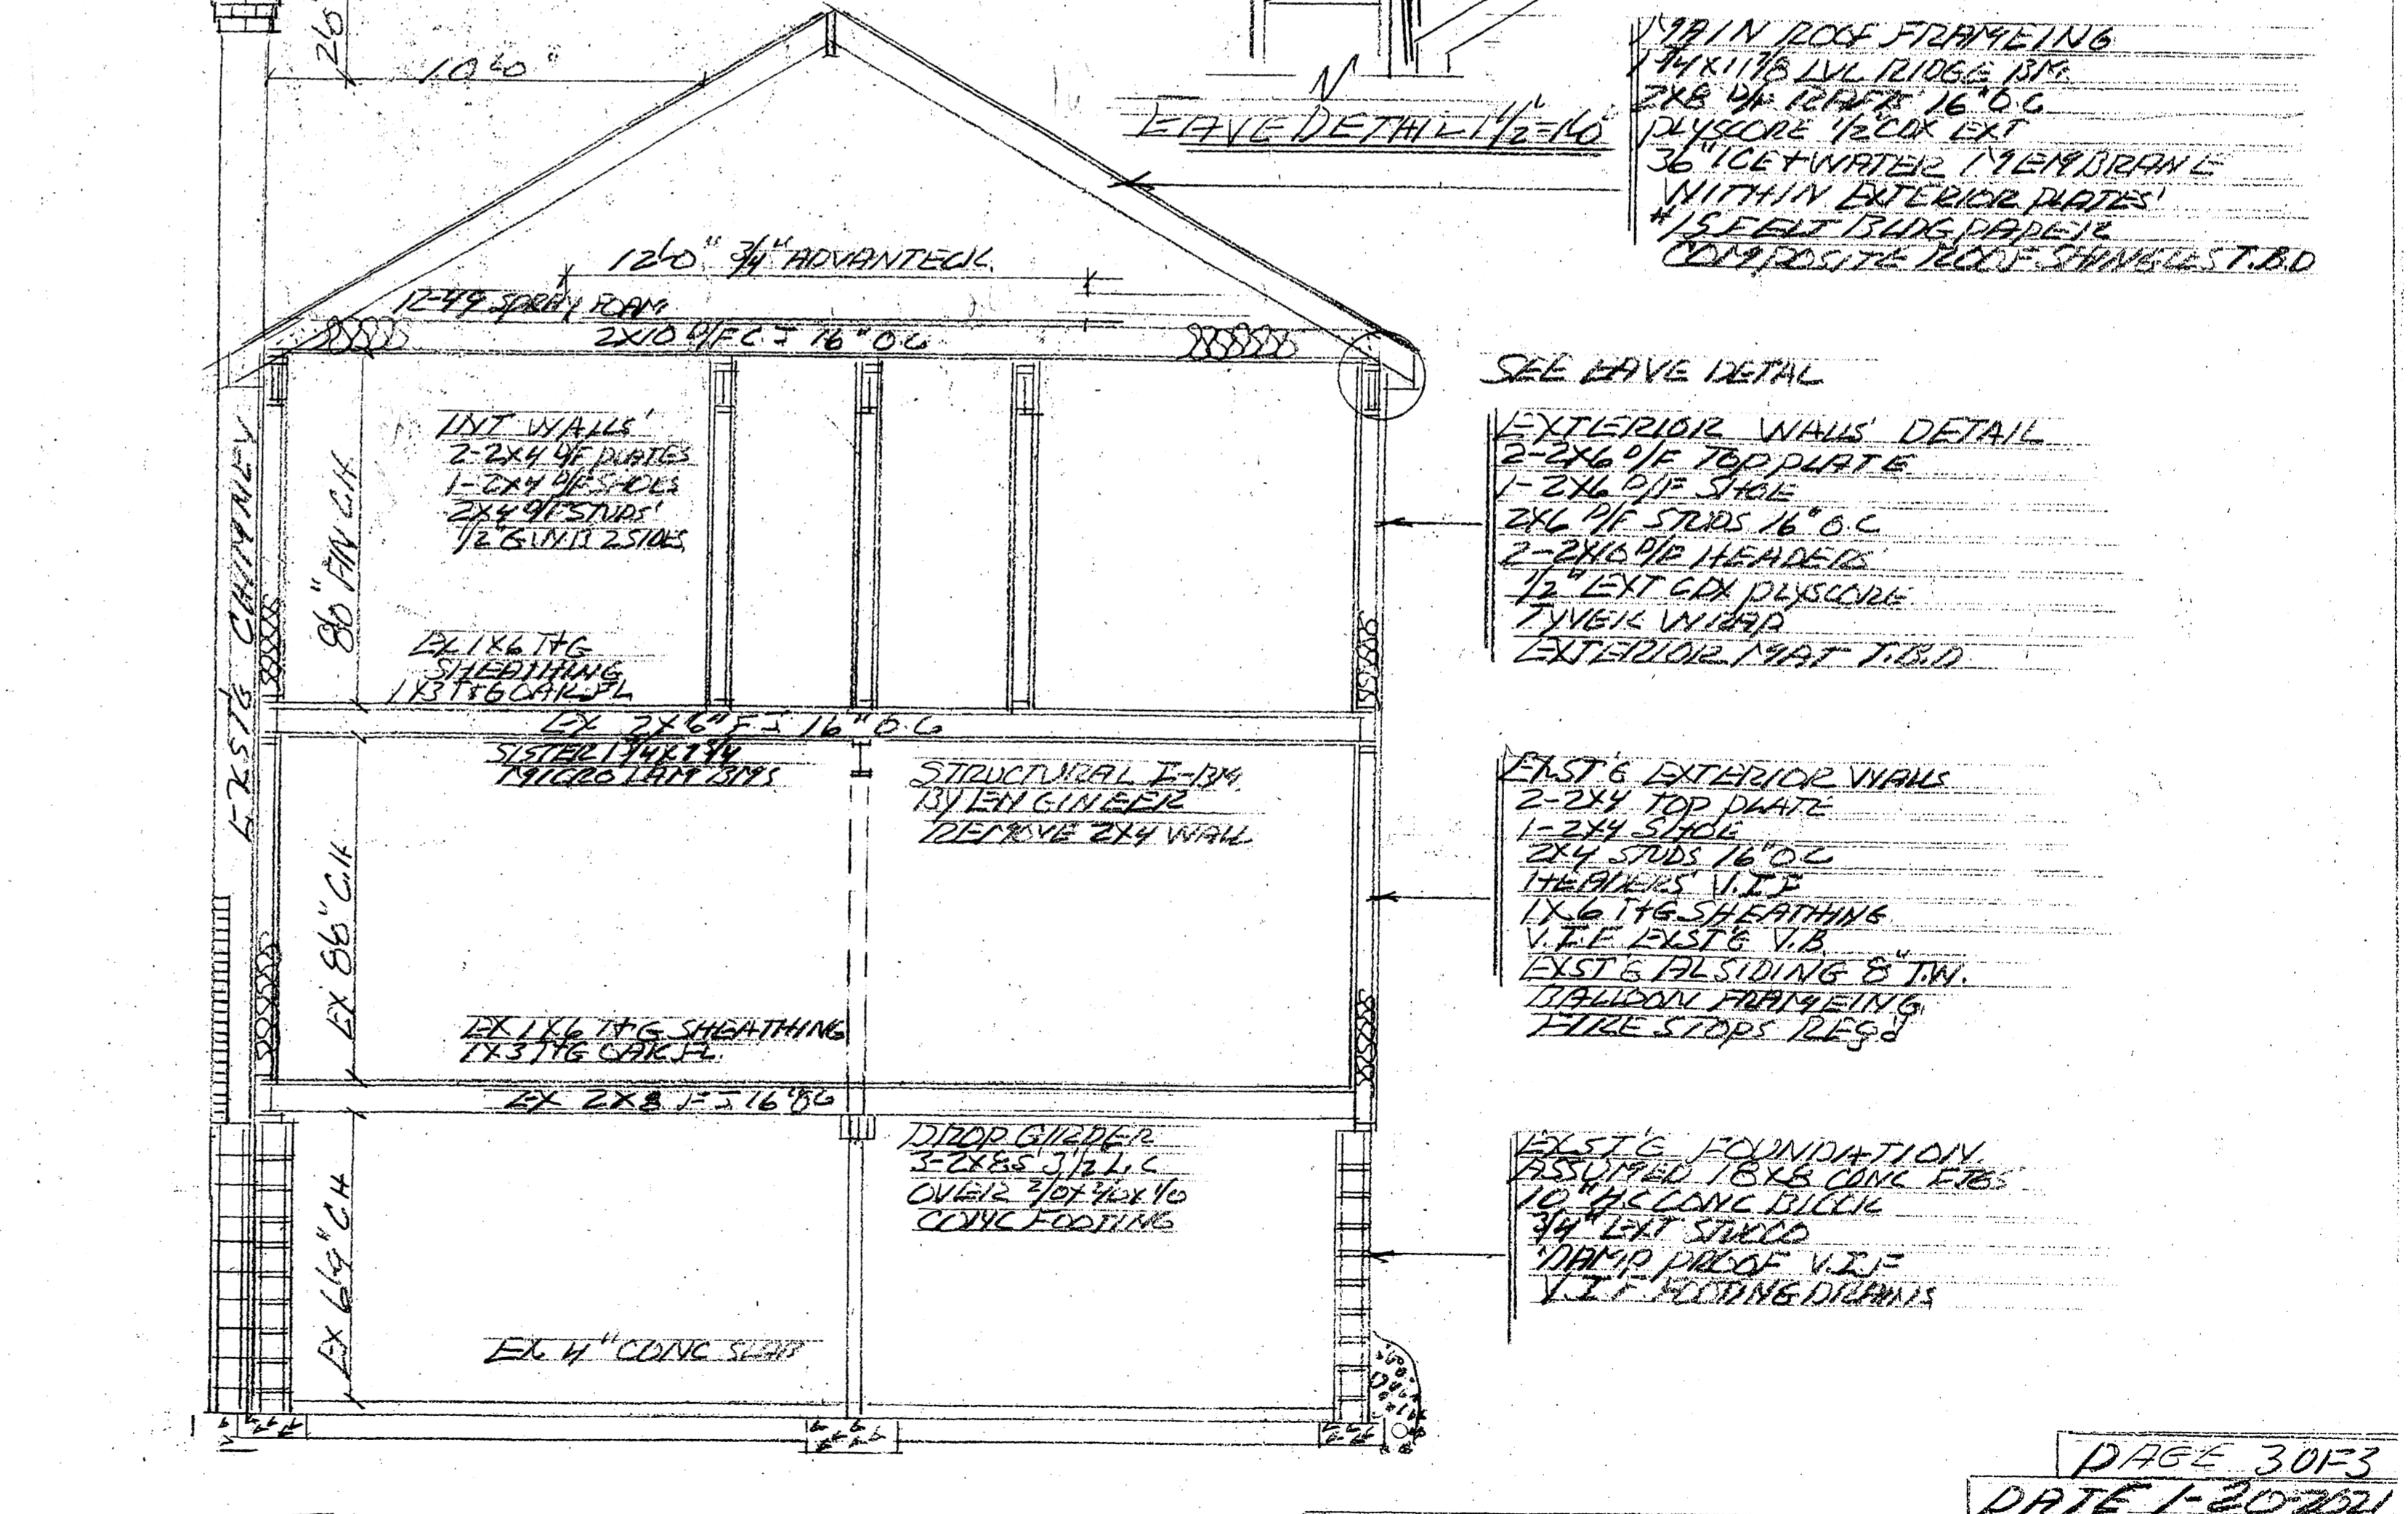 26
10'0"
N
EAVE DETAIL 1 1/2"=1'0"
MAIN ROOF FRAMEING
1 3/4X11 7/8 LVL RIDGE BM.
2X8 D/F RAFTR'S 16" O.C
PLYSCORE 1/2" CDX EXT
36" ICE + WATER MEMBRANE
WITHIN EXTERIOR PLATES'
#15 FELT BLDG PAPER
COMPOSITE ROOF SHINGLES T.B.D
12'0" 3/4" ADVANTECK
R-49 SPRAY FOAM
2X10 D/F C.J 16" O.C
SEE EAVE DETAL
EXTERIOR WALLS' DETAIL
2-2X6 D/F TOP PLATE
1-2X6 D/F SHOE
2X6 D/F STUDS 16" O.C
2-2X10 D/F HEADERS'
1/2" EXT CDX PLYSCORE
TYVEK WRAP
EXTERIOR MAT T.B.D
INT WALLS'
2-2X4 D/F PLATES
1-2X4 D/F SHOES
2X4 D/F STUDS'
1/2" G.W.B 2 SIDES
8'0" FIN C.H.
EXST'G CHIMNEY
EX 1X6 T+G
SHEATHING
1X3 T+G OAK FL
EX 2X6" F J 16" O.C
SISTER 1 3/4X7 1/4
MICRO LAM BMS
STRUCTURAL I-BM.
BY ENGINEER
REMOVE 2X4 WALL
EXST'G EXTERIOR WALLS
2-2X4 TOP PLATE
1-2X4 SHOE
2X4 STUDS 16" O.C
HEADERS' V.I.F
1X6 T+G SHEATHING
V.I.F EXST'G V.B
EXST'G AL SIDING 8" T.W.
BALLOON FRAMEING
FIRE STOPS REQ'd
EX 8'6" C.H
EX 1X6 T+G SHEATHING
1X3 T+G OAK FL.
EX 2X8 F J 16" OC
DROP GIRDER
3-2X8S' 3 1/2 L.C
OVER 2/0X2/0X1/0
CONC FOOTING
EXST'G FOUNDATION
ASSUMED 18X8 CONC FTGS'
10" H.C CONC BLCK
3/4" EXT STUCCO
DAMP PROOF V.I.F
V.I.F FOOTING DRAINS
EX 6'9" CH
EX 4" CONC SLAB
PAGE 3 OF 3
DATE 1-20-2021